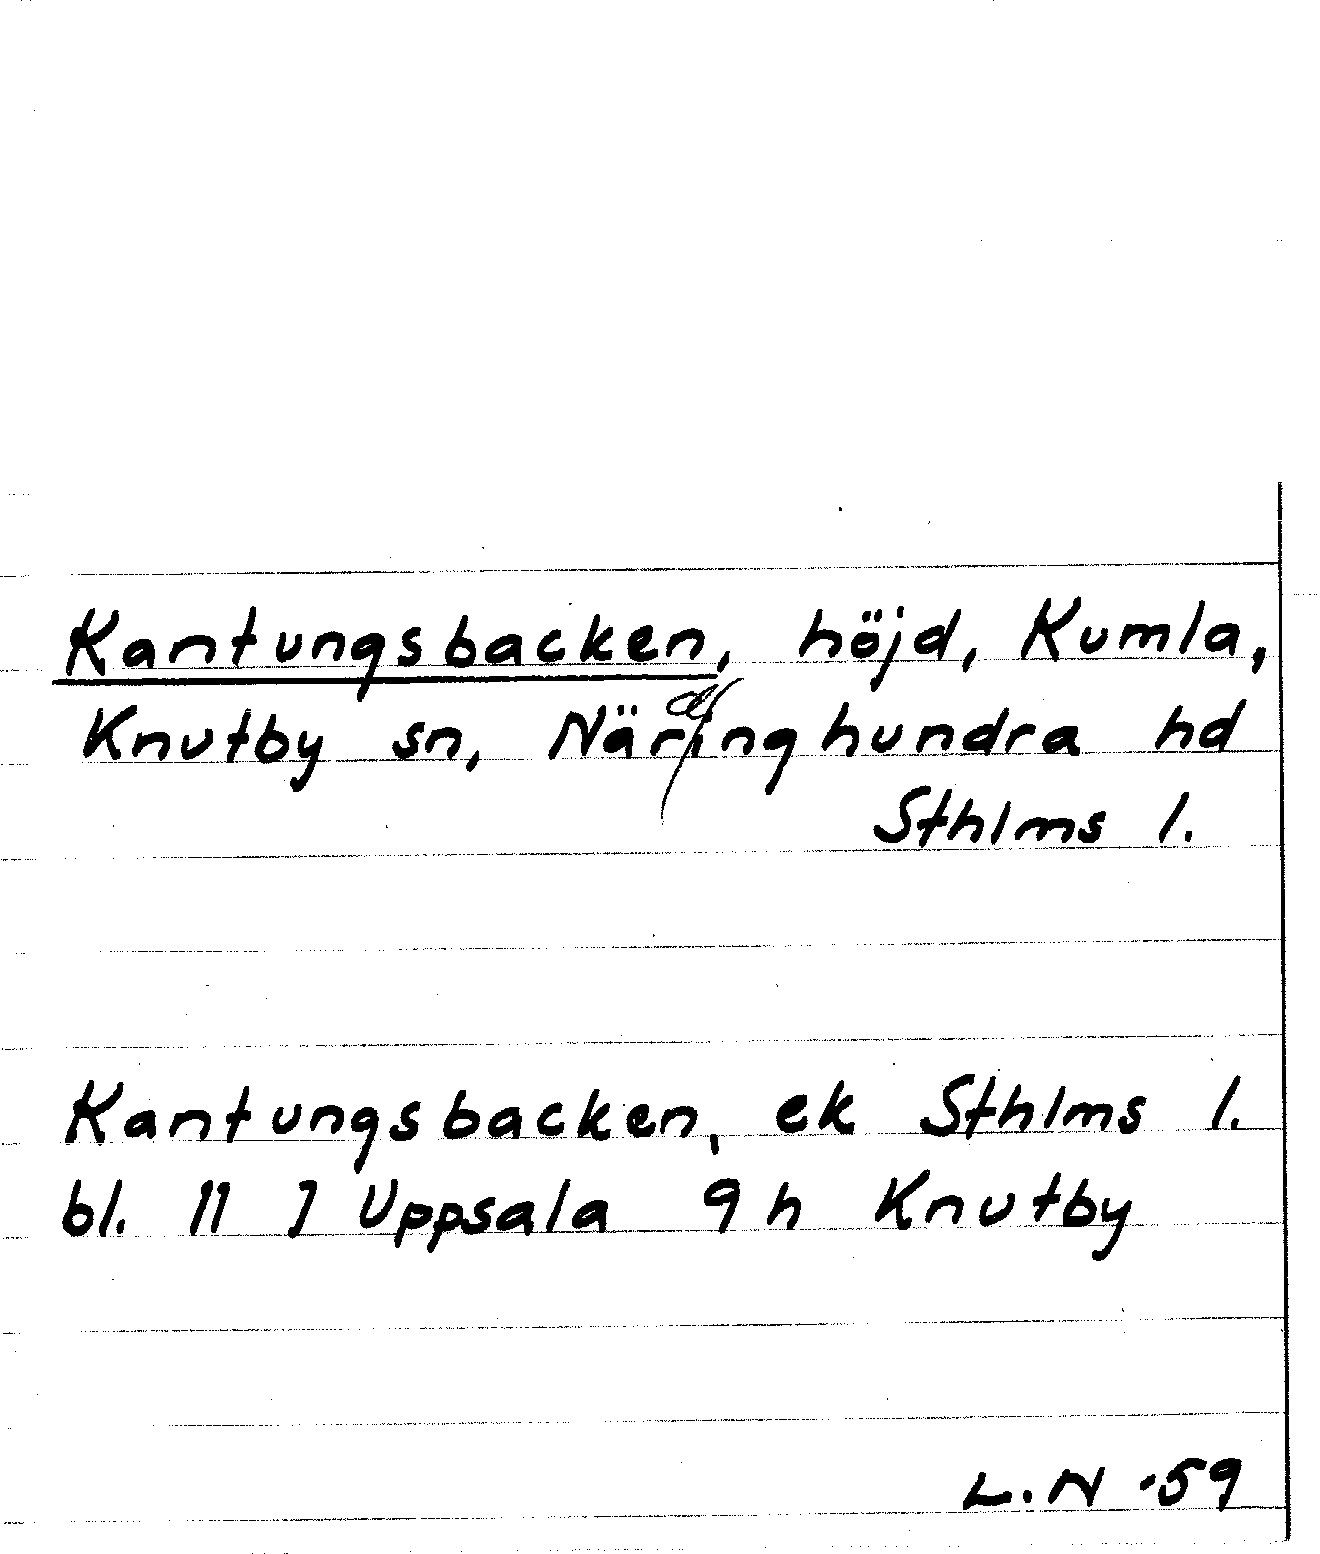 Kantungsbacken, höjd, Kumla,
Knutby sn, Närdinghundra hd
Sthlms l.
Kantungsbacken, ek Sthlms l.
bl. 11 I Uppsala 9h Knutby
L.N -59